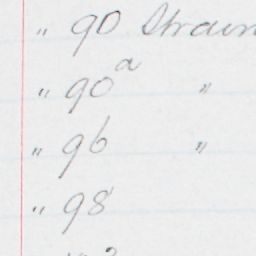 " 90 Strain
" 90a "
" 96 "
" 98